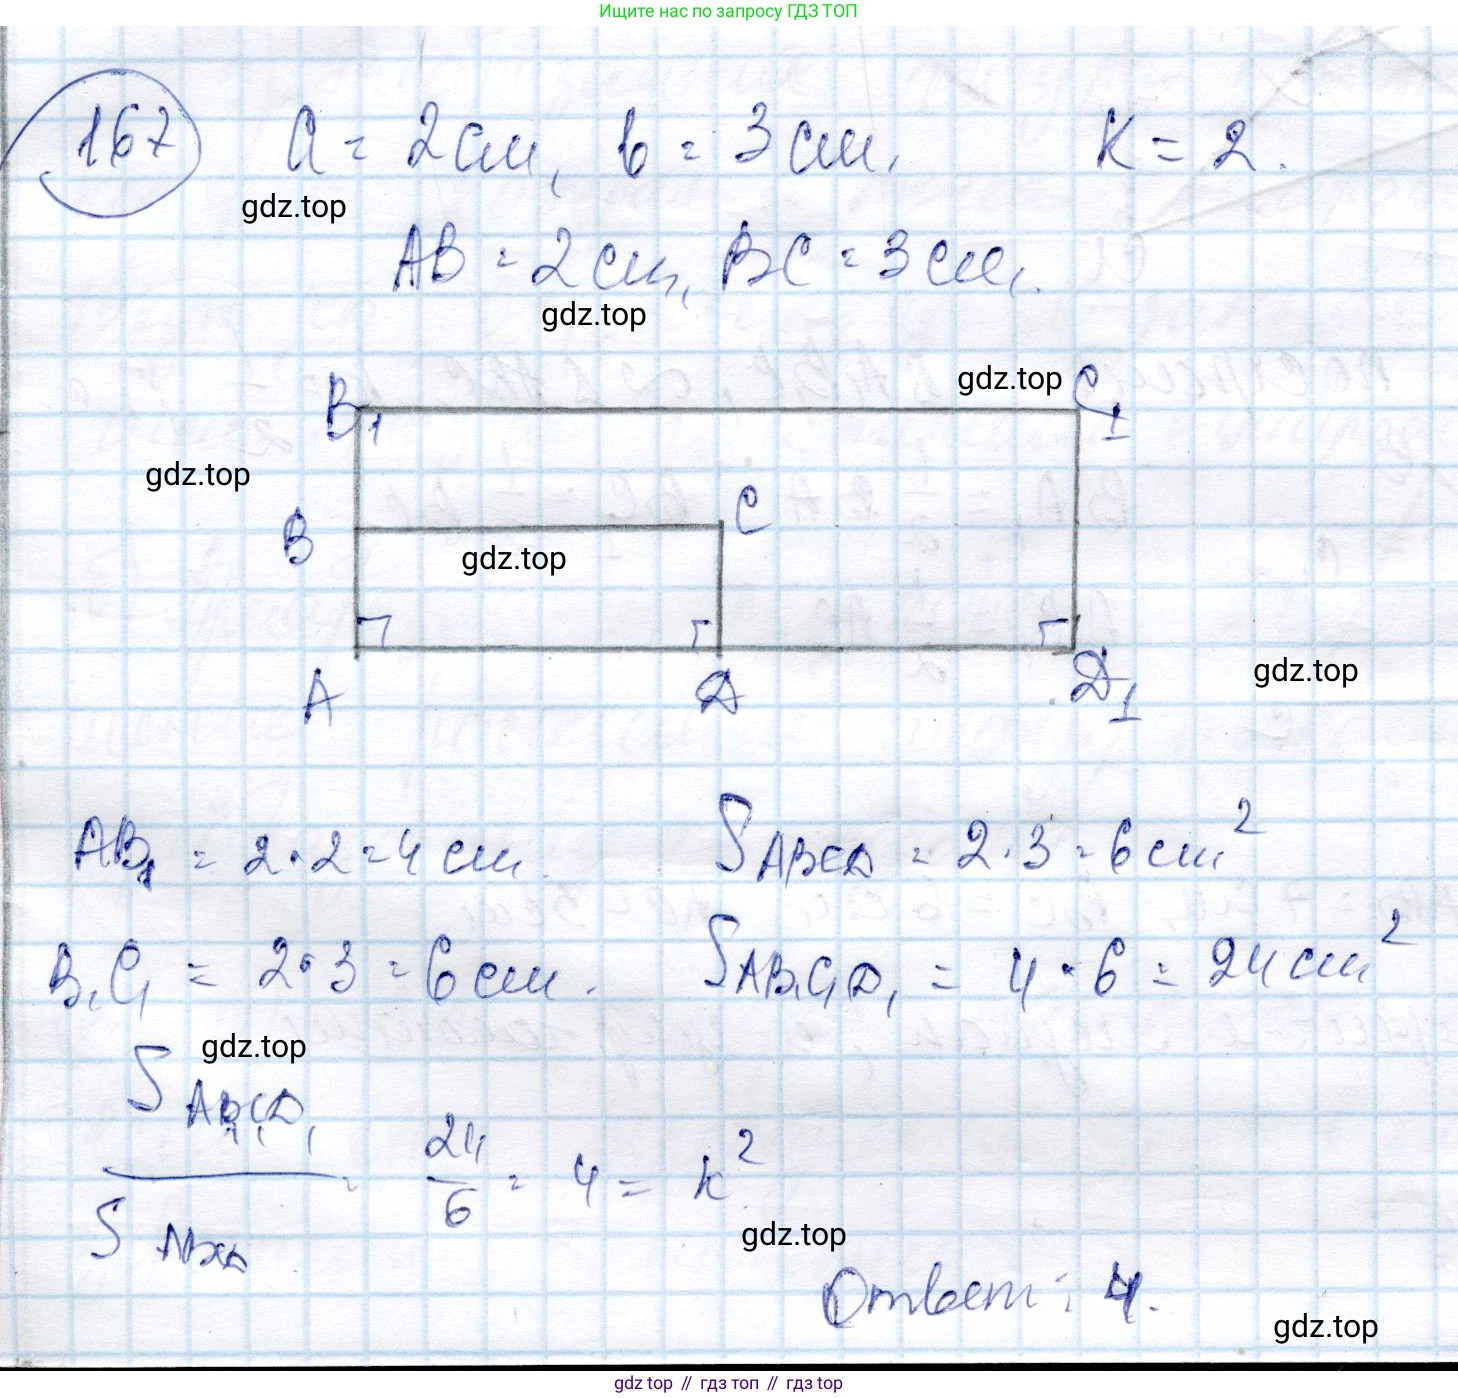 Ищите нас по запросу ГДЗ ТОП
167 a = 2 см, b = 3 см. K = 2.
gdz.top
AB = 2 см, BC = 3 см.
gdz.top
gdz.top
B₁ C₁
gdz.top
B C
gdz.top
gdz.top
A D D₁
AB₁ = 2·2 = 4 см. S ABCD = 2·3 = 6 см²
B₁C₁ = 2·3 = 6 см. S AB₁C₁D₁ = 4·6 = 24 см²
gdz.top
S AB₁C₁D₁ / S ABCD = 24/6 = 4 = k²
gdz.top
Ответ: 4.
gdz.top
gdz top // гдз топ // гдз top